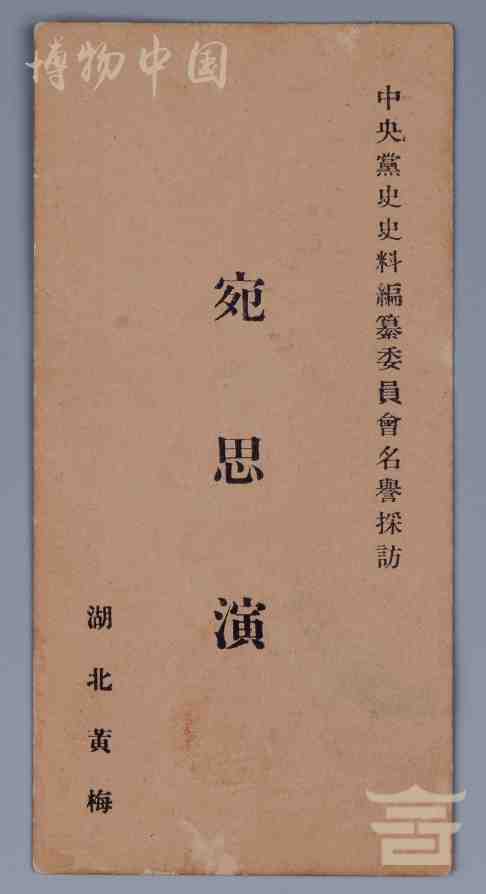 博物中国
中央黨史史料編纂委員會名譽採訪
宛思演
湖北黃梅